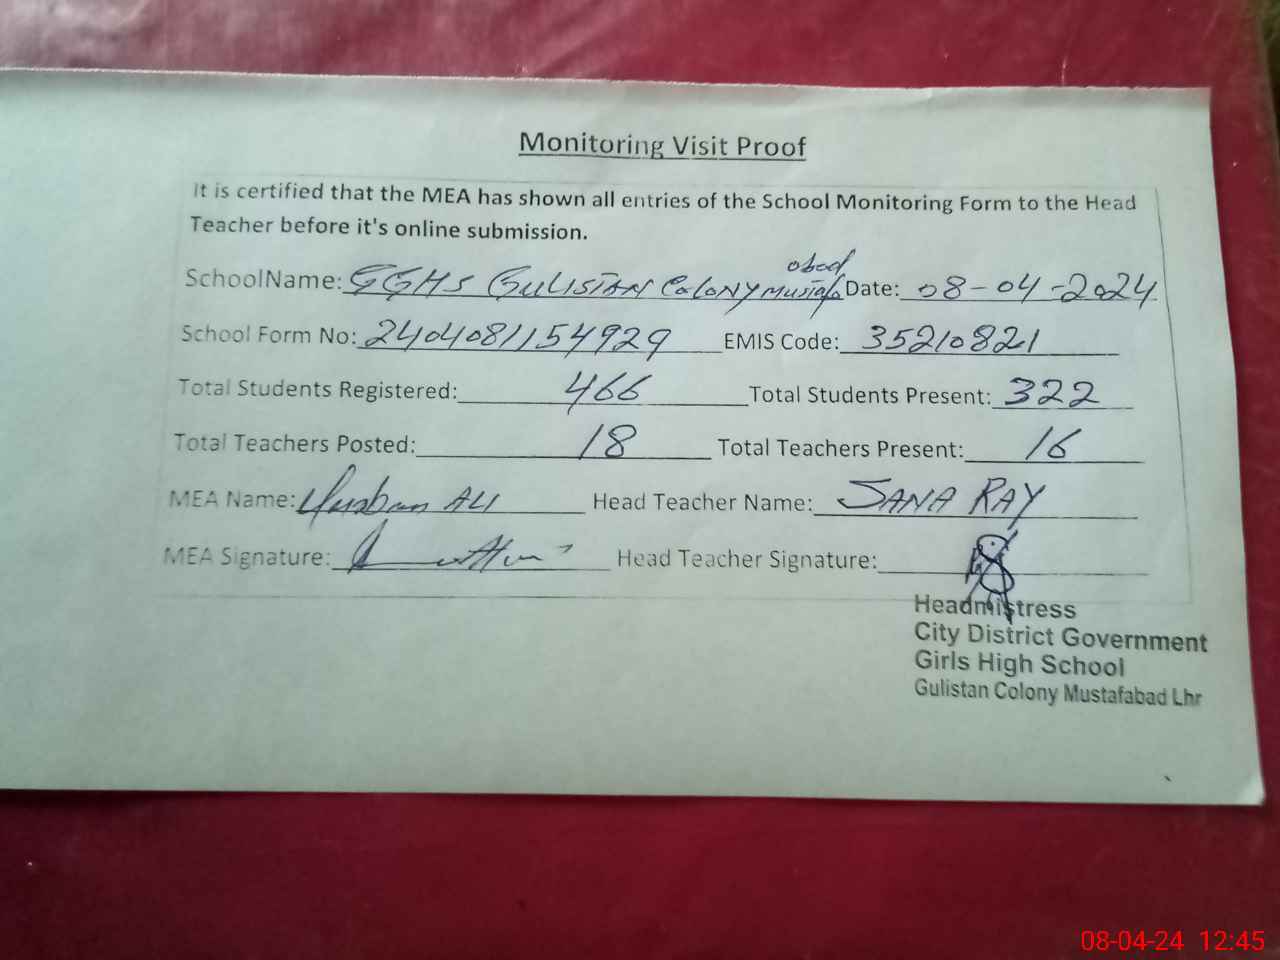 Monitoring Visit Proof
It is certified that the MEA has shown all entries of the School Monitoring Form to the Head
Teacher before it's online submission.
SchoolName: GGHS GULISTAN COLONY Mustafa abad Date: 08-04-2024
School Form No: 2404081154929 EMIS Code: 35210821
Total Students Registered: 466 Total Students Present: 322
Total Teachers Posted: 18 Total Teachers Present: 16
MEA Name: ALI Head Teacher Name: SANA RAY
MEA Signature: Head Teacher Signature:
Headmistress
City District Government
Girls High School
Gulistan Colony Mustafabad Lhr
08-04-24 12:45